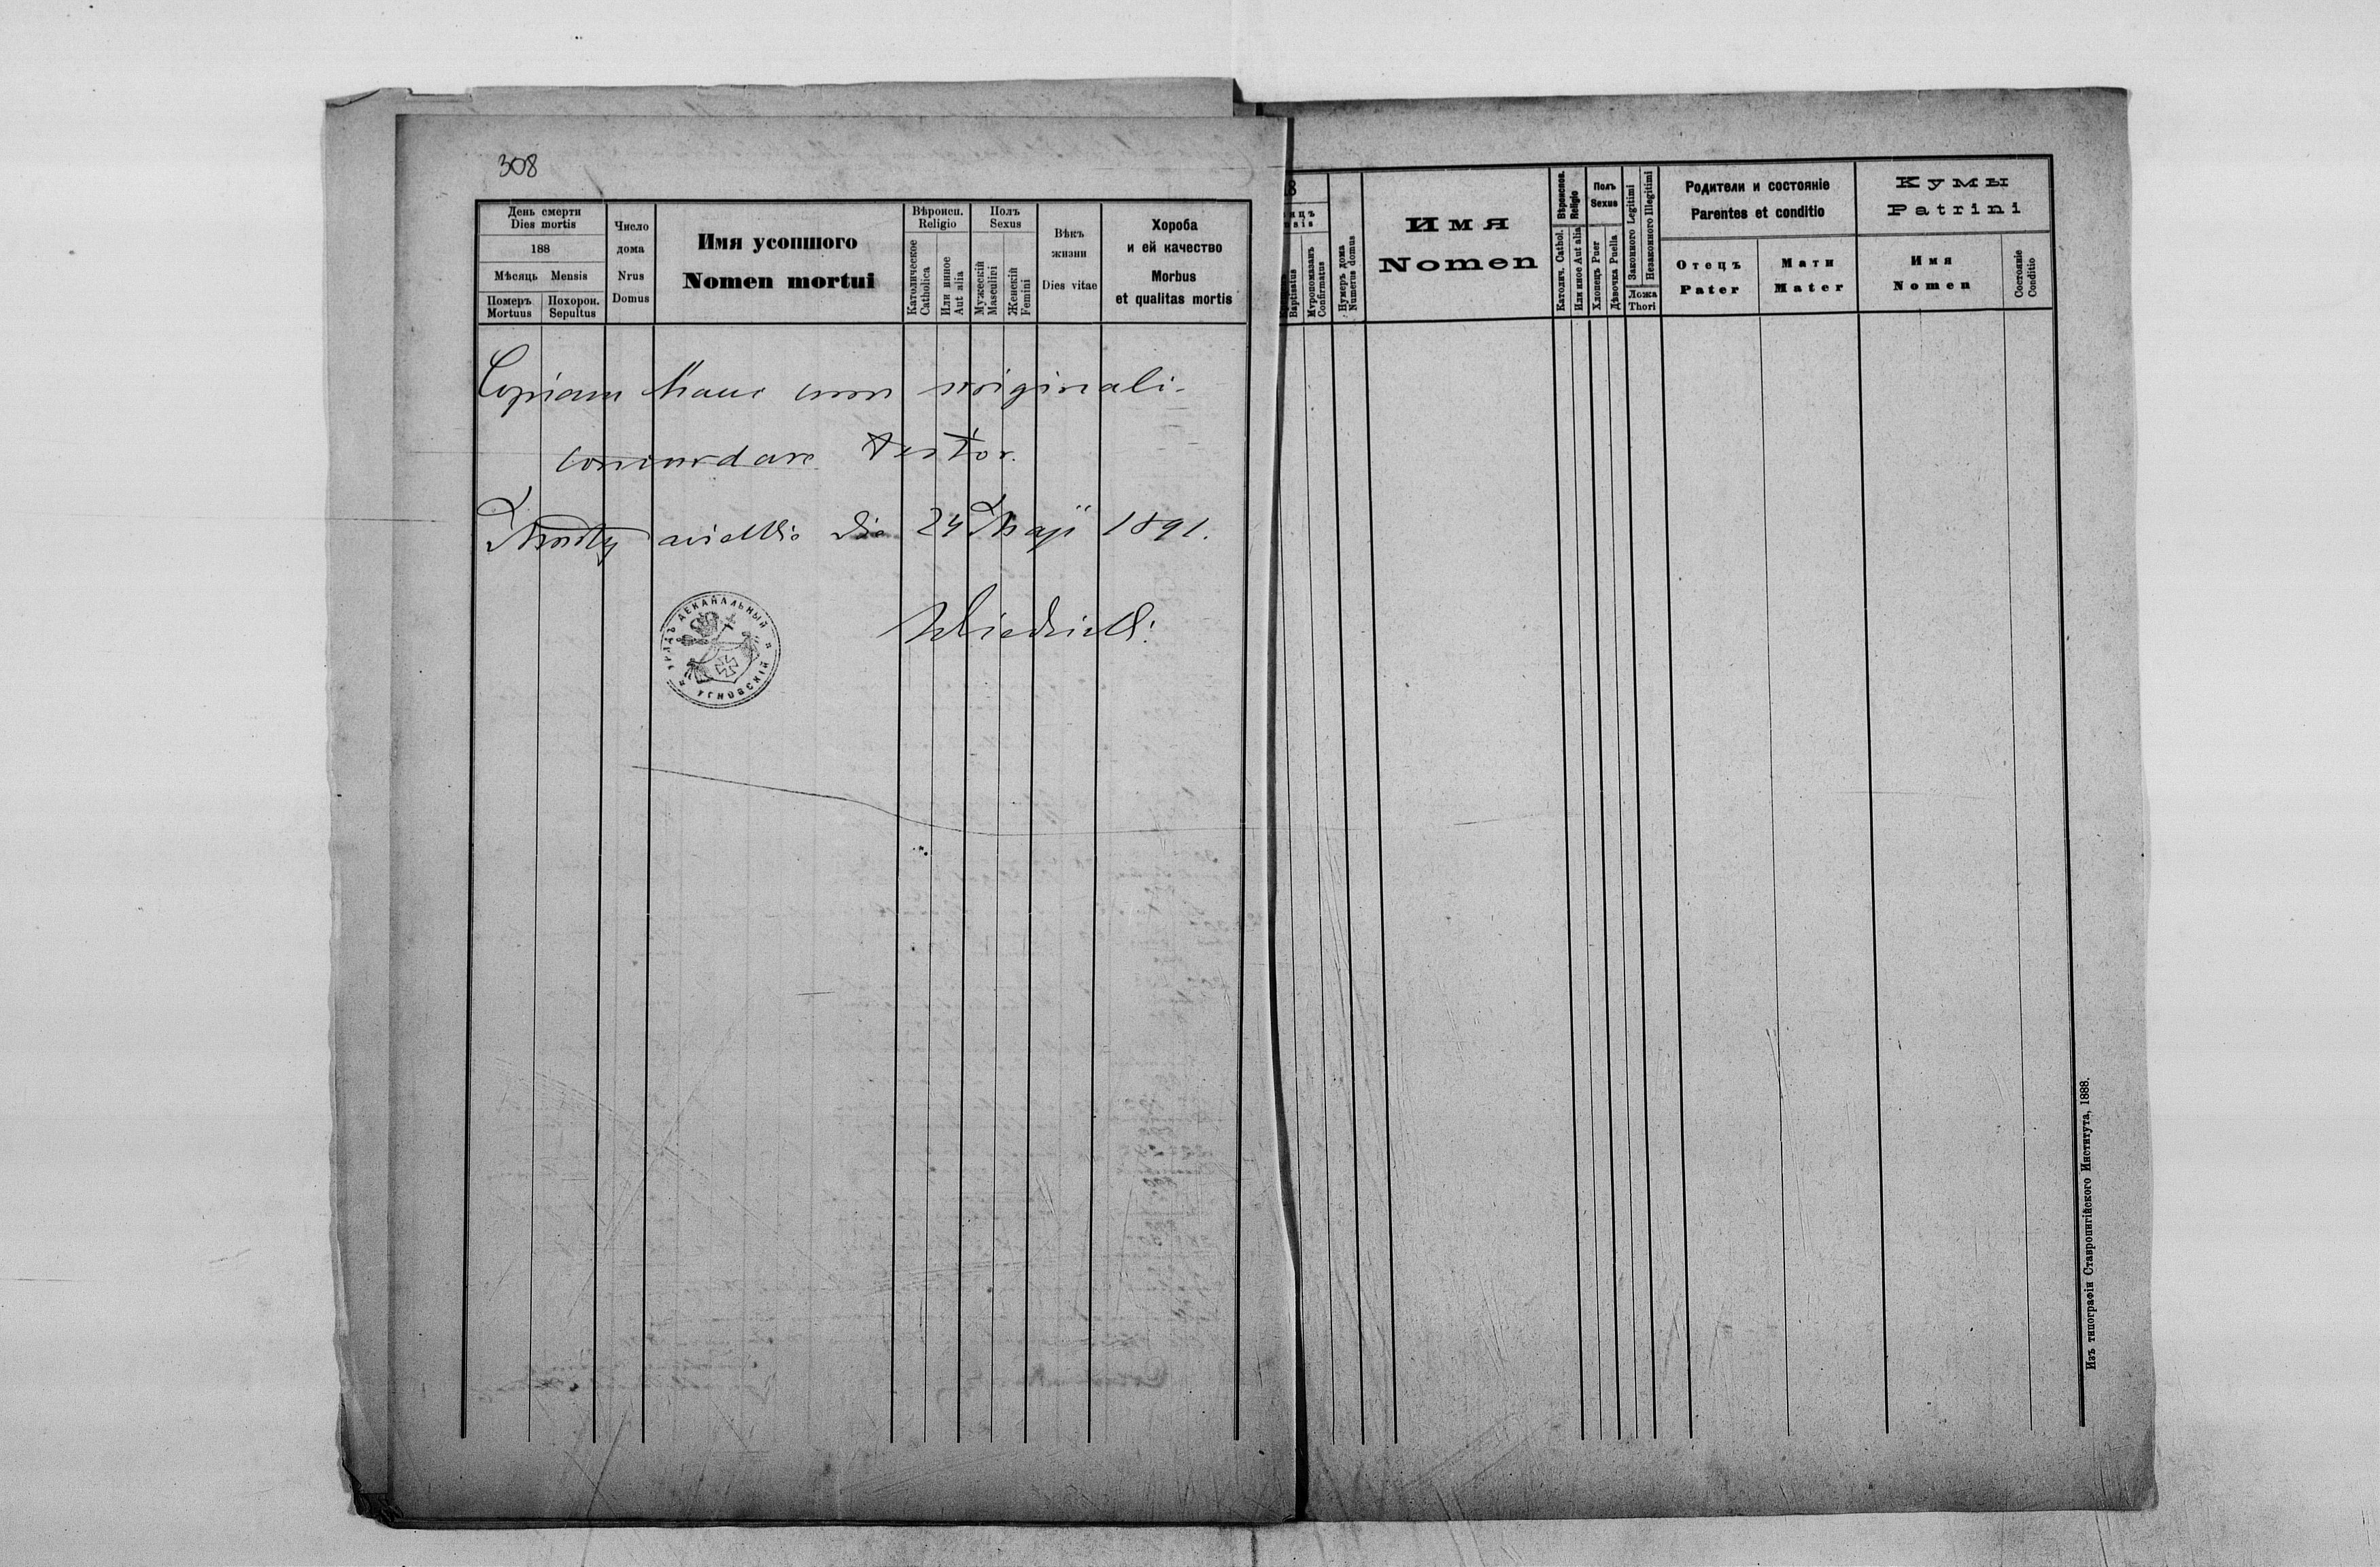 308
День смерти
Dies mortis
188
Мѣсяць Mensis
Померъ
Mortuus
Похорон.
Sepultus
Число
дома
Nrus
Domus
Имя усопшого
Nomen mortui
Вѣроисп.
Religio
Католическое
Catholica
Или инное
Aut alia
Полъ
Sexus
Мужескій
Masculini
Женскій
Femini
Вѣкъ
жизни
Dies vitae
Хороба
и ей качество
Morbus
et qualitas mortis
Copiam hanc cum originali
concordare testor.
die 24 Maji 1891.
ДЕКАНАЛЬНЫЙ
УГНОВСКІЙ
8
Baptisatus
Мѵропомазанъ
Confirmatus
Нумеръ дома
Numerus domus
Имя
Nomen
Вѣроиспов.
Religio
Католич. Cathol.
Или иное Aut alia
Полъ
Sexus
Хлопецъ Puer
Дѣвочка Puella
Законного Legitimi
Незаконного Illegitimi
Ложа
Thori
Родители и состояніе
Parentes et conditio
Отецъ
Pater
Мати
Mater
Кумы
Patrini
Имя
Nomen
Состояніе
Conditio
Изъ типографіи Ставропигійского Института, 1888.